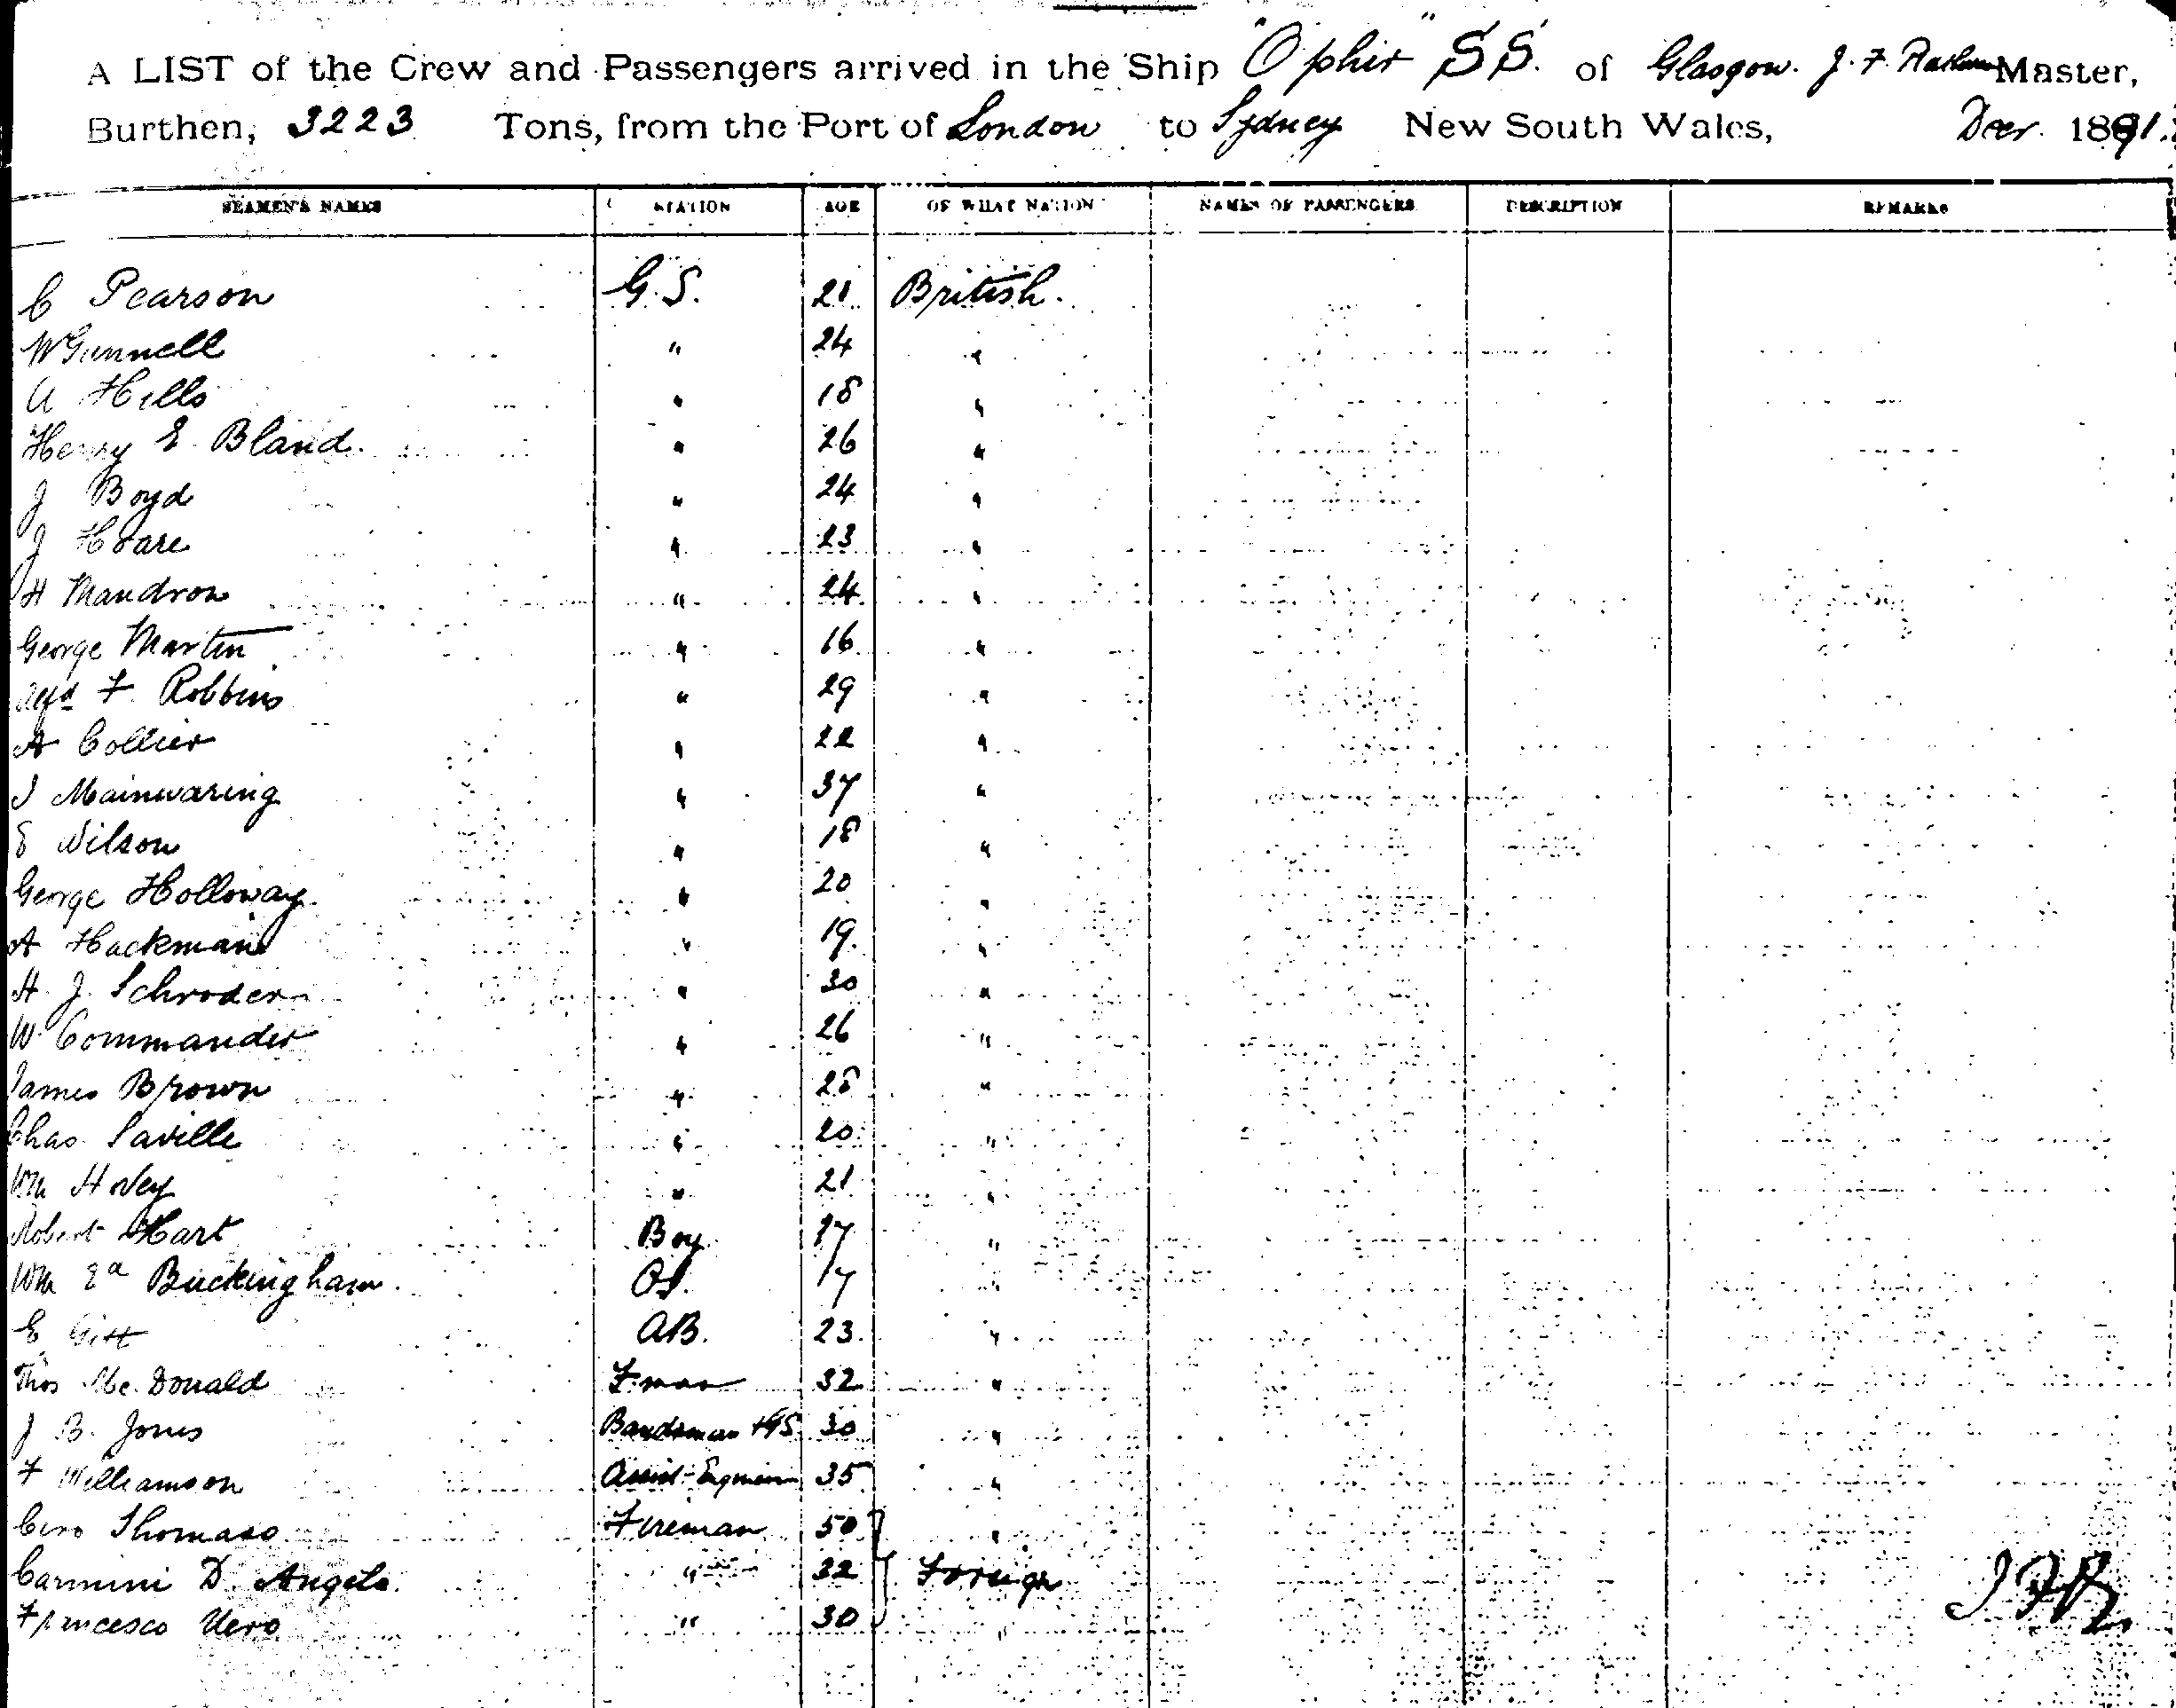 A LIST of the Crew and Passengers arrived in the Ship "Ophir" SS. of Glasgow. J. F. Master,
Burthen, 3223 Tons, from the Port of London to Sydney New South Wales, Decr. 1891.
SEAMEN'S NAMES STATION AGE OF WHAT NATION NAMES OF PASSENGERS DESCRIPTION REMARKS
C Pearson G.S. 21 British.
W Gunnell " 24 "
A Hills " 18 "
Henry E. Bland. " 26 "
J Boyd " 24 "
J Hoare " 23 "
H Mandron " 24 "
George Martin " 16 "
Alfd F. Robbins " 29 "
A Collier " 22 "
J Mainwaring " 37 "
E Wilson " 18 "
George Holloway. " 20 "
A Hackman " 19. "
H. J. Schroder " 30 "
W. Commander " 26 "
James Brown " 28 "
Chas. Saville " 20 "
Wm Hovey " 21 "
Robert Hart Boy 17 "
Wm Ed Buckingham. OS. 17 "
E Gitt AB. 23. "
Thos Mc. Donald F.man 32 "
J B. Jones Bandsman + GS 30 "
F Williamson Assist-Engineer 35 "
Ciro Thomaso Fireman 50 "
Carmini D. Angelo. " 32 Foreign
Francesco Vero " 30
JFR.